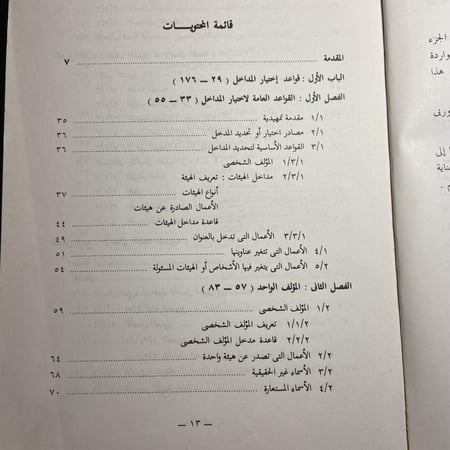 قائمة المحتويـــات
المقدمة ........ ٧
الباب الأول : قواعد إختيار المداخل ( ٢٩ — ١٧٦ )
الفصل الأول : القواعد العامة لاختيار المداخل ( ٣٣ — ٥٥ )
١/١ مقدمة تمهيدية ........ ٣٥
٢/١ مصادر اختيار أو تحديد المدخل ........ ٣٦
٣/١ القواعد الأساسية لتحديد المداخل ........ ٣٦
١/٣/١ المؤلف الشخصى
٢/٣/١ مداخل الهيئات : تعريف الهيئة
أنواع الهيئات ........ ٣٧
الأعمال الصادرة عن هيئات
قاعدة مداخل الهيئات ........ ٤٤
٣/٣/١ الأعمال التى تدخل بالعنوان ........ ٤٩
٤/١ الأعمال التى تتغير عناوينها ........ ٥١
٥/٢ الأعمال التى يتغير فيها الأشخاص أو الهيئات المسئولة ........ ٥٤
الفصل الثانى : المؤلف الواحد ( ٥٧ — ٨٣ )
١/٢ المؤلف الشخصى ........ ٥٩
١/١/٢ تعريف المؤلف الشخصى
٢/١/٢ قاعدة مدخل المؤلف الشخصى
٢/٢ الأعمال التى تصدر عن هيئة واحدة ........ ٦٤
٣/٢ الأسماء غير الحقيقية ........ ٦٨
٤/٢ الأسماء المستعارة ........ ٧٠
— ١٣ —
الجزء
واردة
هذا
ورنى
إلى